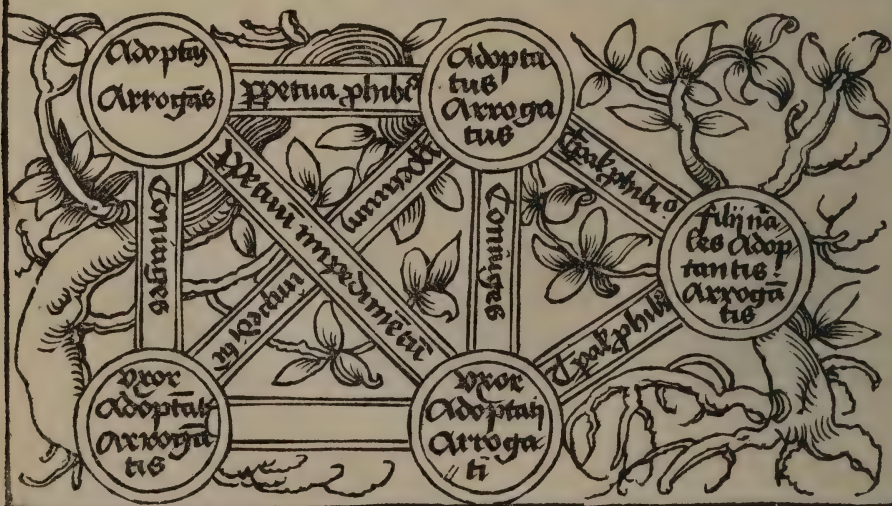 Adoptās
Arrogās
ppetua phibc̄
Adopta
tus
Arroga
tus
Coniuges
ppetuū impedimētū
ppetuum
impedimētū
Coniuges
Tpalꝭ phibc̄o
Tpalꝭ phibc̄
filij nāles
Adop
tantis
Arrogā
tis
vxor
Adoptātis
Arrogā
tis
vxor
Adoptati
Arroga
ti